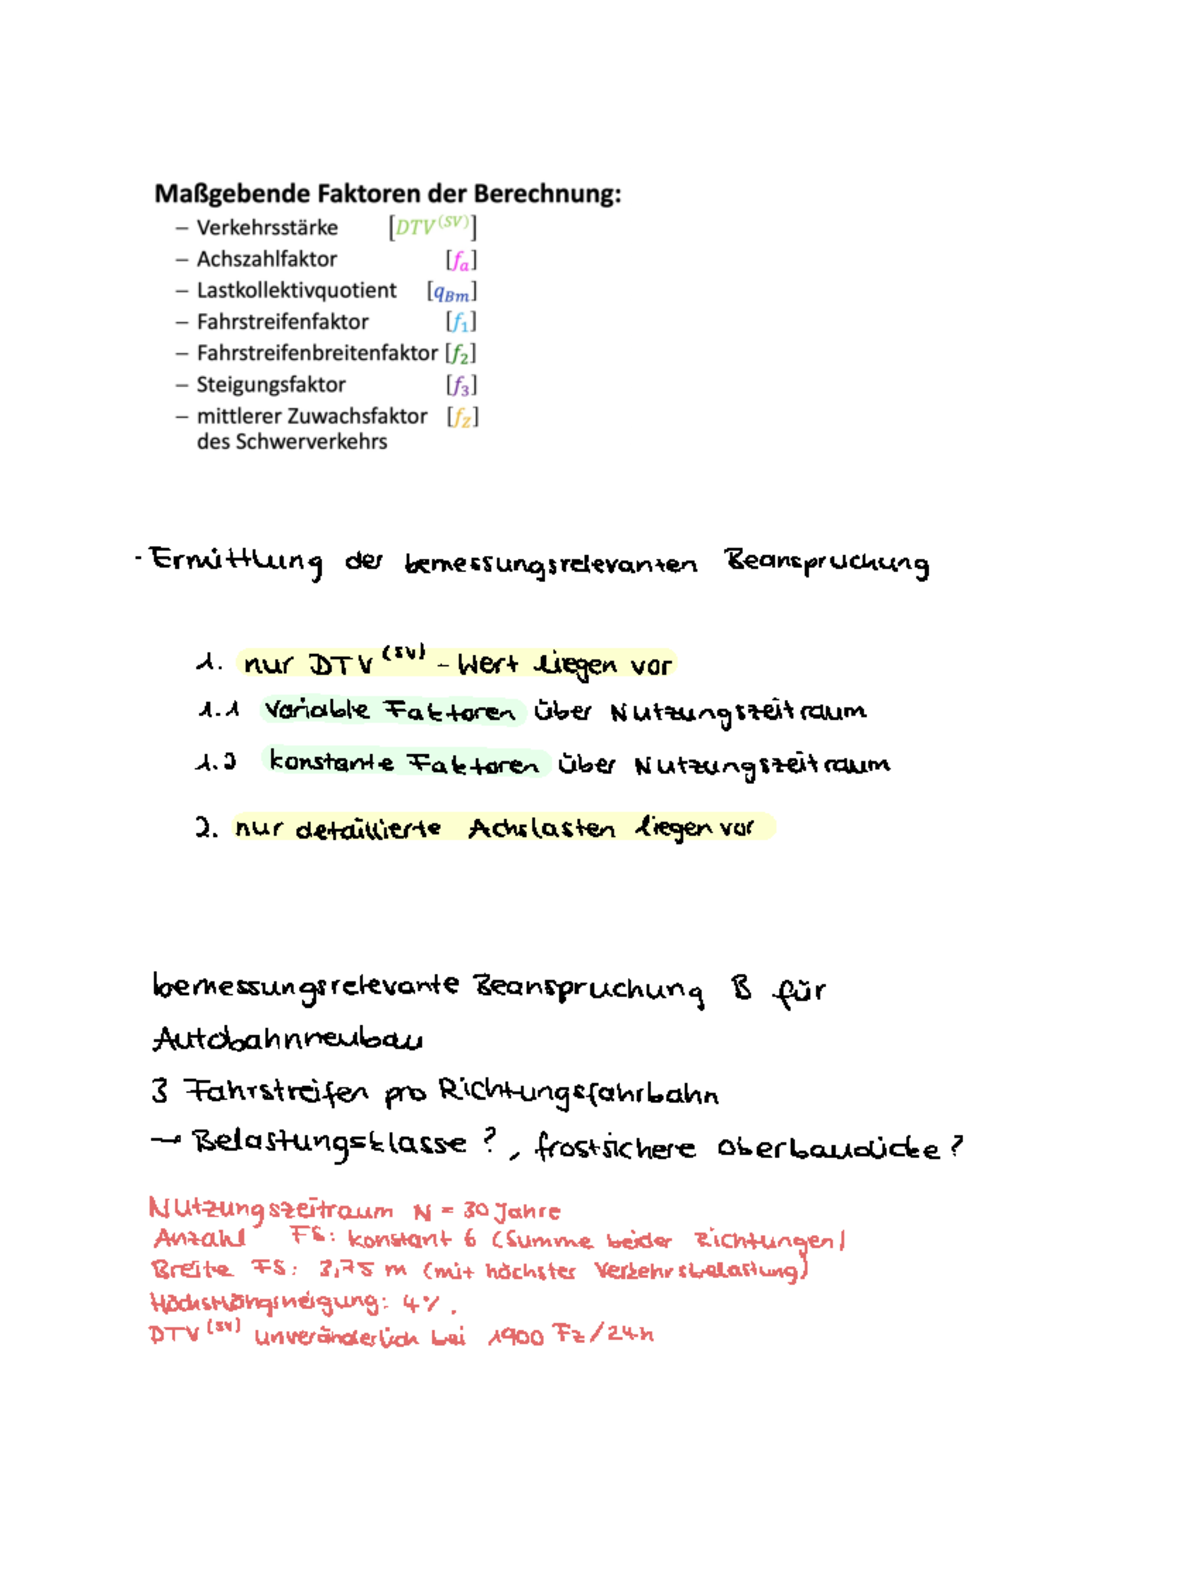 Maßgebende Faktoren der Berechnung:
– Verkehrsstärke [DTV^(SV)]
– Achszahlfaktor [f_a]
– Lastkollektivquotient [q_Bm]
– Fahrstreifenfaktor [f_1]
– Fahrstreifenbreitenfaktor [f_2]
– Steigungsfaktor [f_3]
– mittlerer Zuwachsfaktor [f_Z]
des Schwerverkehrs
- Ermittlung der bemessungsrelevanten Beanspruchung
1. nur DTV^(SV) - Wert liegen vor
1.1 variable Faktoren über Nutzungszeitraum
1.2 konstante Faktoren über Nutzungszeitraum
2. nur detaillierte Achslasten liegen vor
bemessungsrelevante Beanspruchung B für
Autobahnneubau
3 Fahrstreifen pro Richtungsfahrbahn
→ Belastungsklasse?, frostsichere Oberbaudicke?
Nutzungszeitraum N = 30 Jahre
Anzahl FS: konstant 6 (Summe beider Richtungen)
Breite FS: 3,75 m (mit höchster Verkehrsbelastung)
Höchstlängsneigung: 4%.
DTV^(SV) unveränderlich bei 1900 Fz/24h